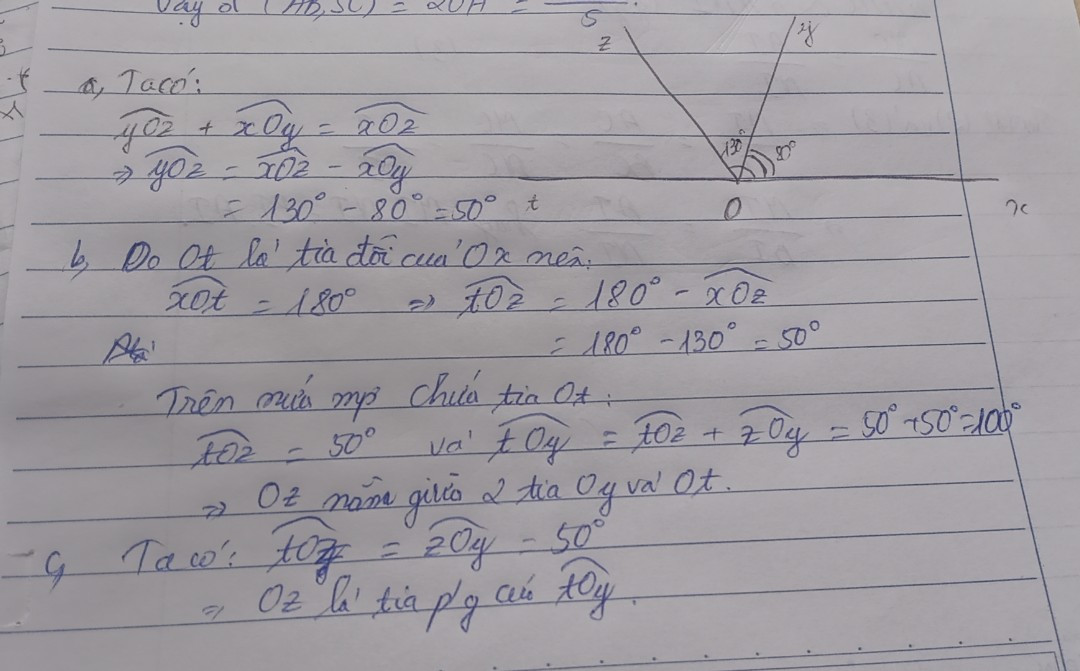 Vậy d (AB, SC) = 2OA =
S
z
y
a, Ta có:
yOz + xOy = xOz
130° 80°
⇒ yOz = xOz - xOy
= 130° - 80° = 50°
t O x
b, Do Ot là tia đối của Ox nên:
xOt = 180° ⇒ tOz = 180° - xOz
= 180° - 130° = 50°
Trên nửa mp chứa tia Ot:
tOz = 50° và tOy = tOz + zOy = 50° + 50° = 100°
⇒ Oz nằm giữa 2 tia Oy và Ot.
c, Ta có: tOz = zOy = 50°
⇒ Oz là tia p/g của tOy.